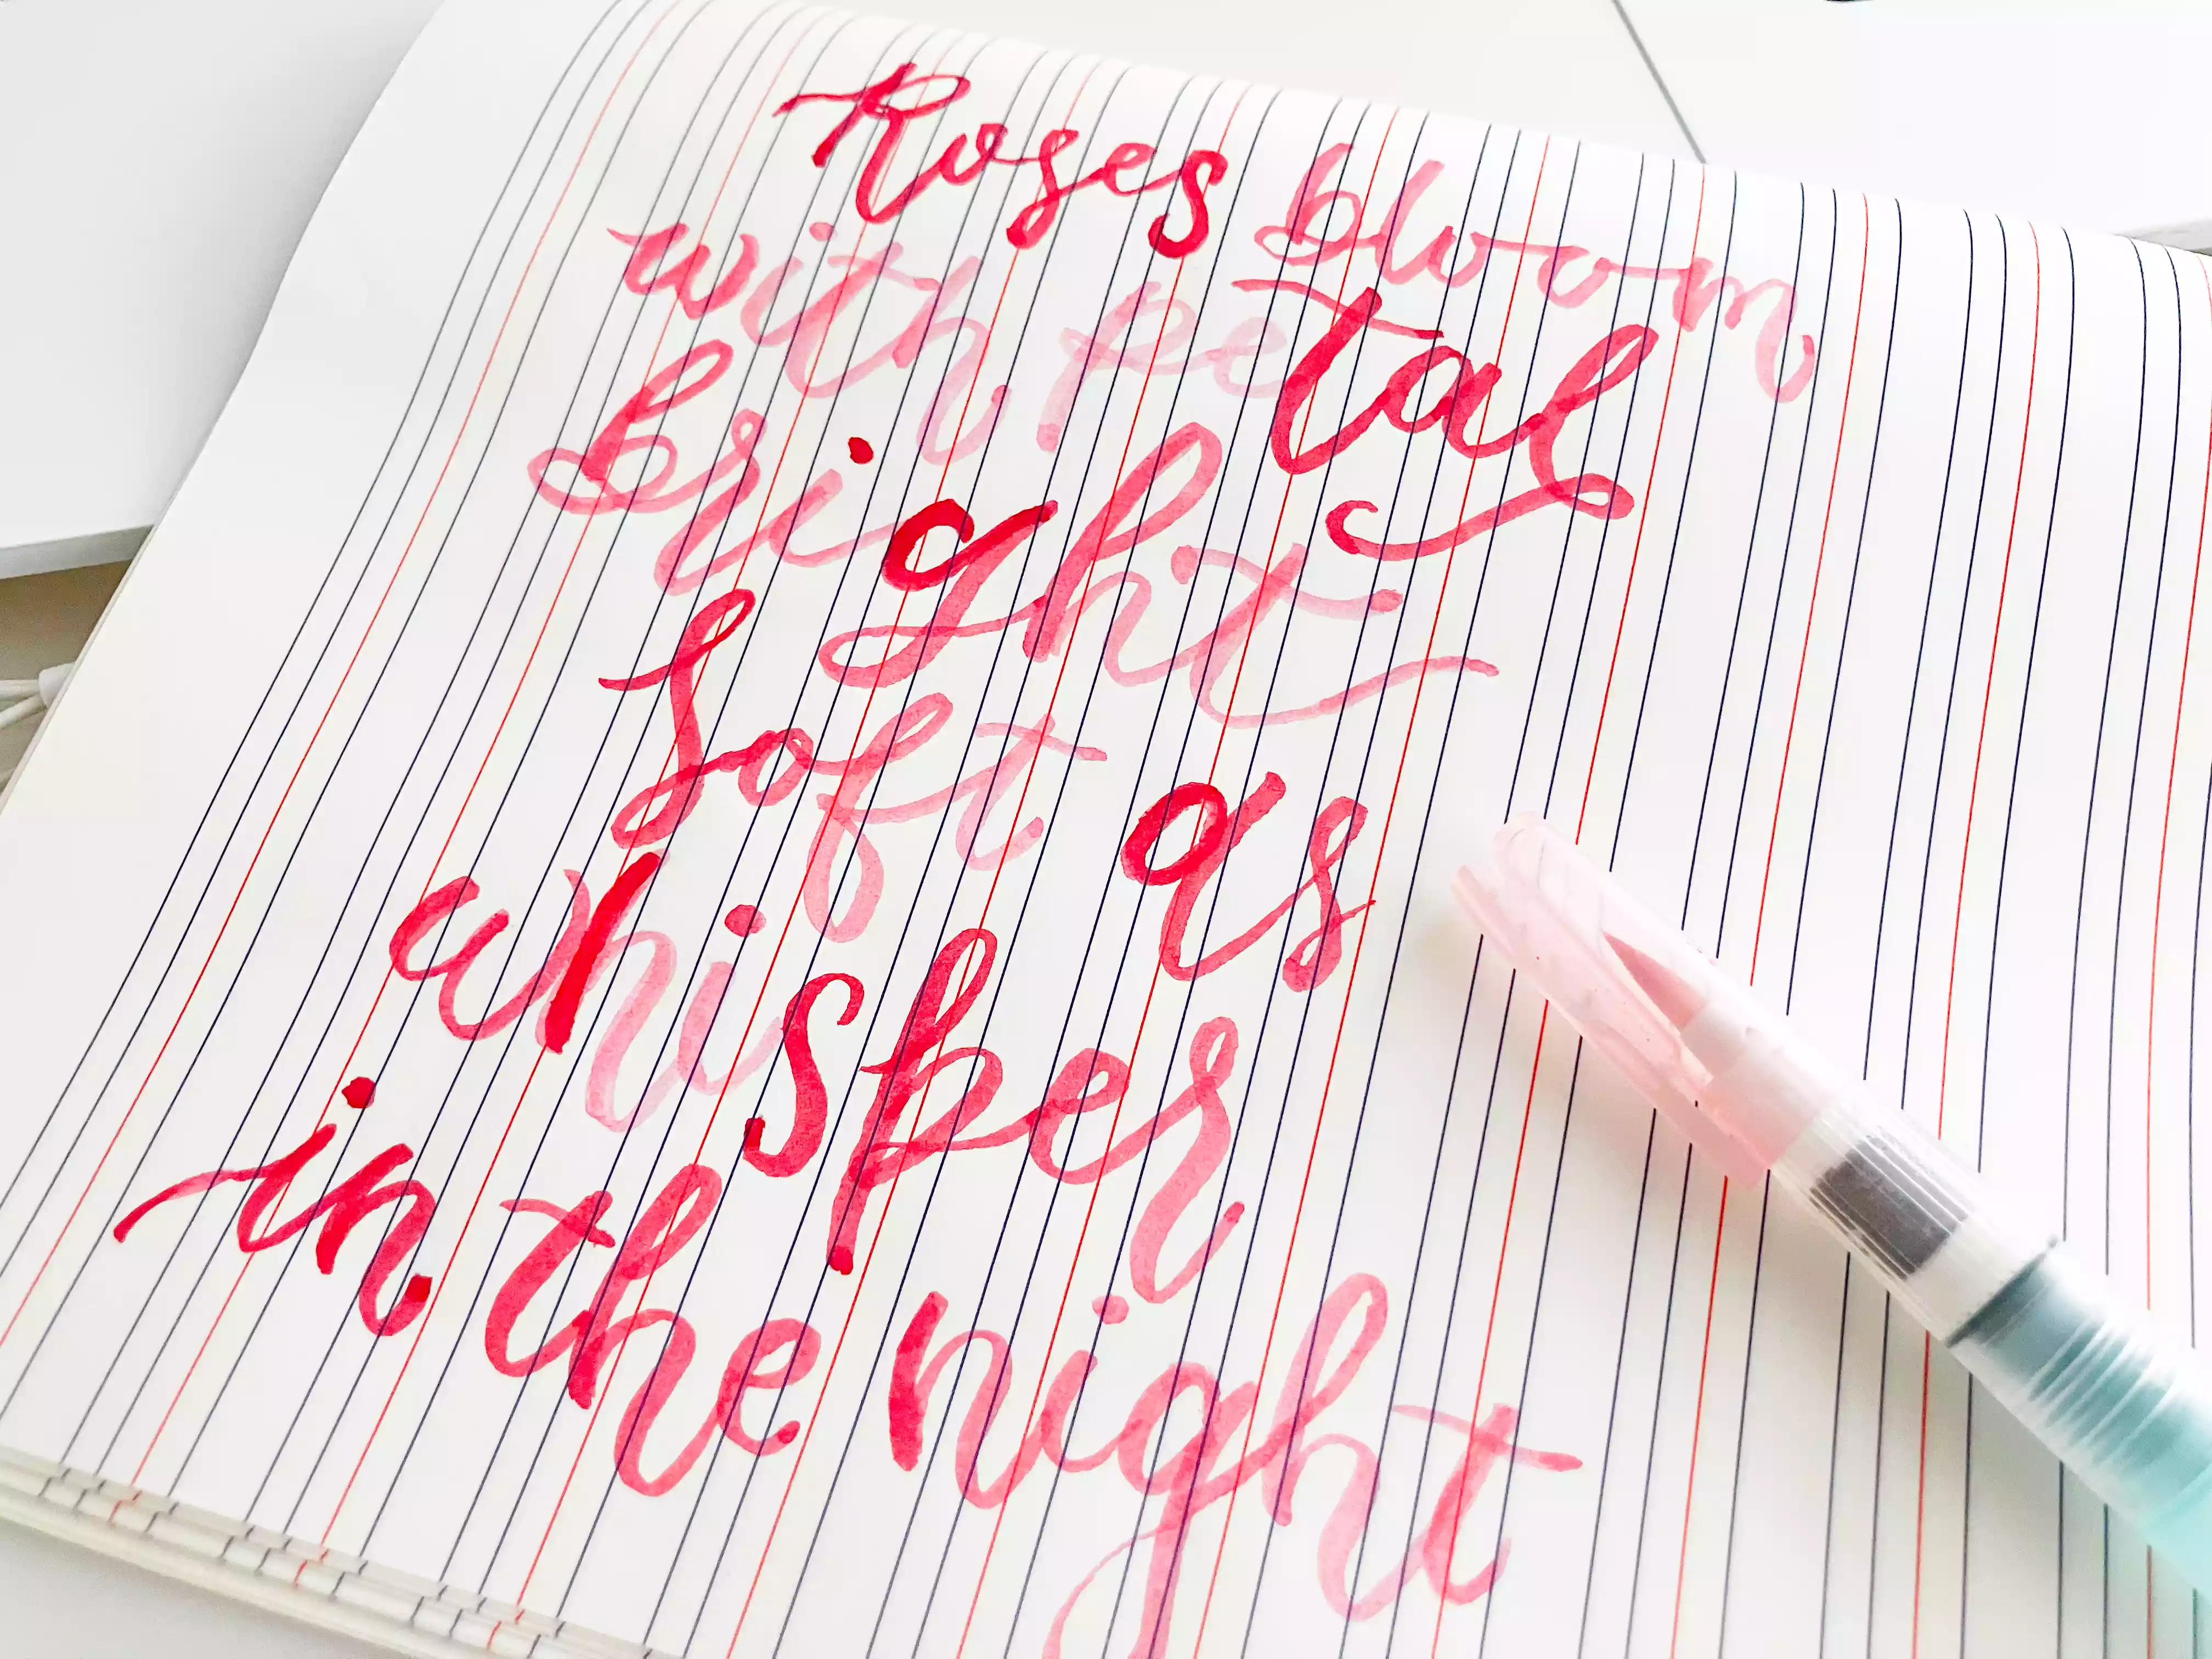 Roses bloom
with petal
bright
Soft as
whisper
in the night